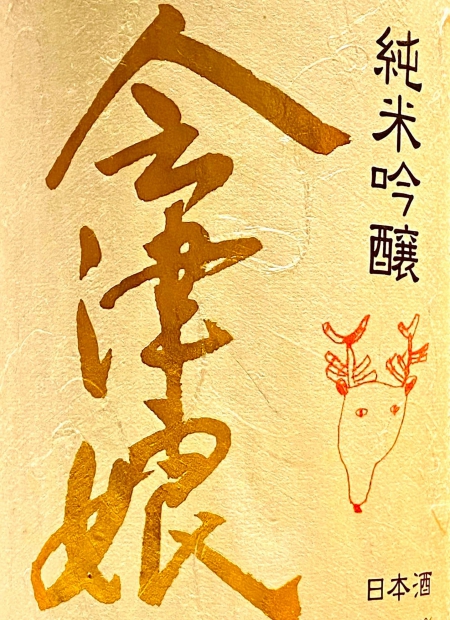 純米吟醸
会津娘
日本酒